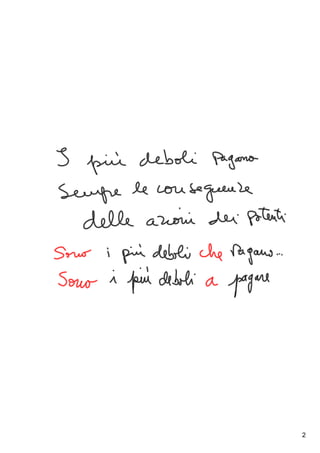 I più deboli pagano
sempre le conseguenze
delle azioni dei potenti
Sono i più deboli che pagano...
Sono i più deboli a pagare
2